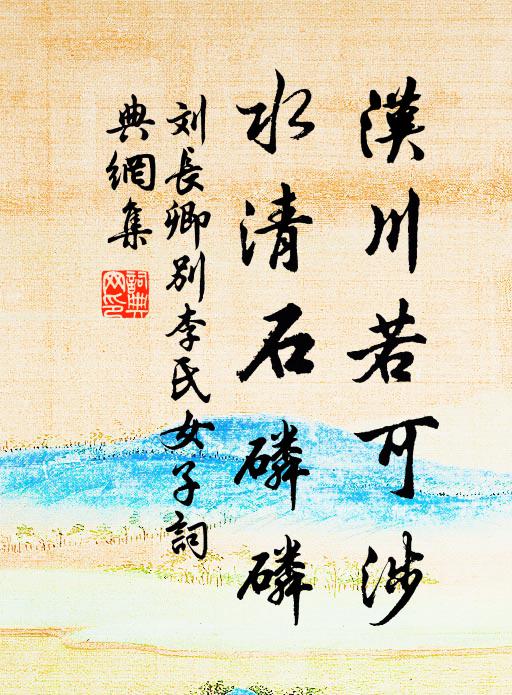 漢川若可涉
水清石磷磷
刘長卿别李氏女子詞
典網集
詞典
网印